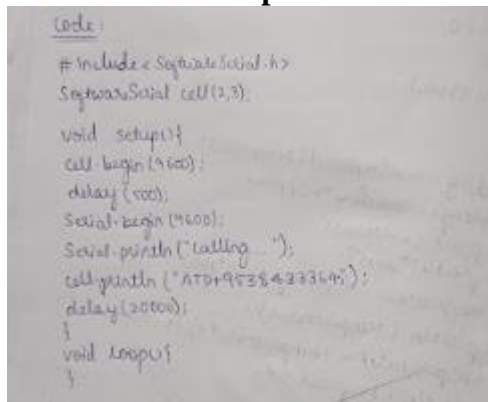 Code:
#include<SoftwareSerial.h>
SoftwareSerial cell(2,3);
void setup(){
cell.begin(9600);
delay(500);
Serial.begin(9600);
Serial.println("calling...");
cell.println("ATD+9538433364;");
delay(20000);
}
void loop(){
}